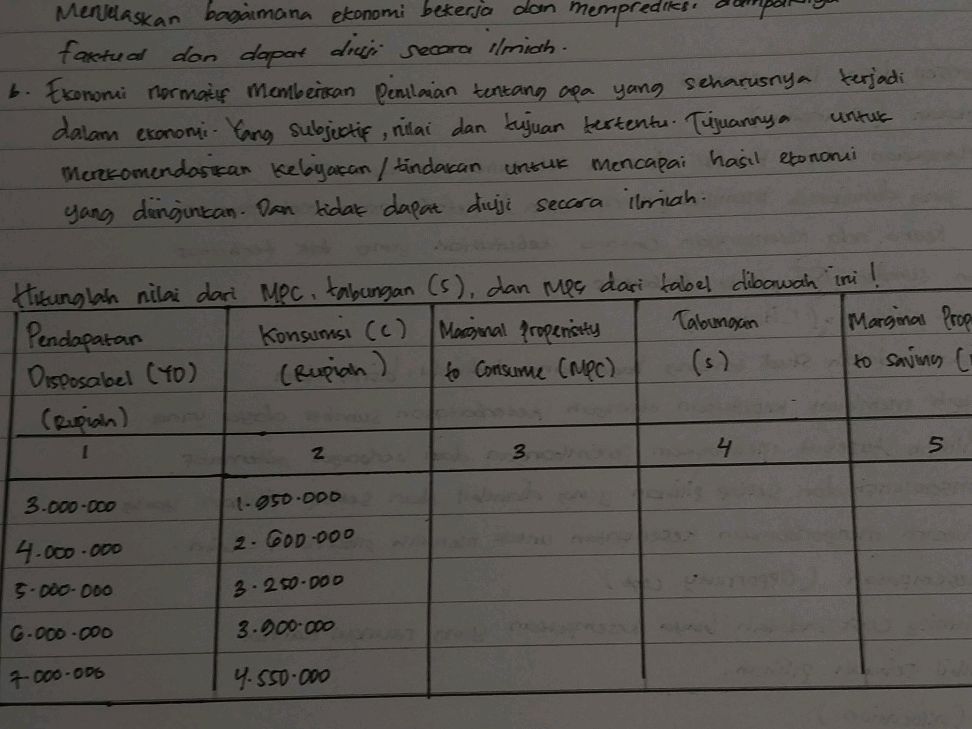 Menjelaskan bagaimana ekonomi bekerja dan memprediksi
faktual dan dapat diuji secara ilmiah.
b. Ekonomi normatif Memberikan Penilaian tentang apa yang seharusnya terjadi
dalam ekonomi. Yang Subjektif, nilai dan tujuan tertentu. Tujuannya untuk
Merekomendasikan Kebijakan / tindakan untuk mencapai hasil ekonomi
yang diinginkan. Dan tidak dapat diuji secara ilmiah.
Hitunglah nilai dari MPC, tabungan (S), dan MPS dari tabel dibawah ini!
Pendapatan Disposabel (YD) (Rupiah) Konsumsi (C) (Rupiah) Marginal Propensity to Consume (MPC) Tabungan (S) Marginal Prop to saving (
1 2 3 4 5
3.000.000 1.950.000
4.000.000 2.600.000
5.000.000 3.250.000
6.000.000 3.900.000
7.000.000 4.550.000